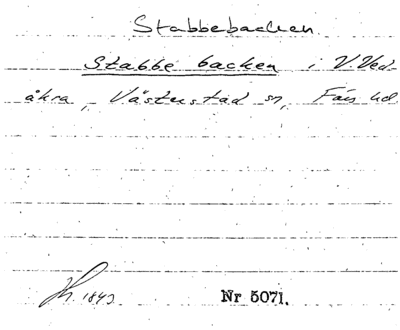 Stabbebacken.
Stabbe backen i V. Ved-
åkra, Västerstad sn, Färs hd
1843
Nr 5071.